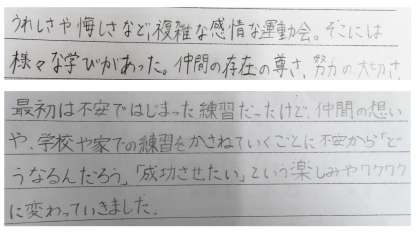 うれしさや悔しさなど、複雑な感情な運動会。そこには
様々な学びがあった。仲間の存在の尊さ、努力の大切さ、
最初は不安ではじまった練習だったけど、仲間の想い
や、学校や家での練習をかさねていくごとに不安から「ど
うなるんだろう」、「成功させたい」という楽しみやワクワク
に変わっていきました。